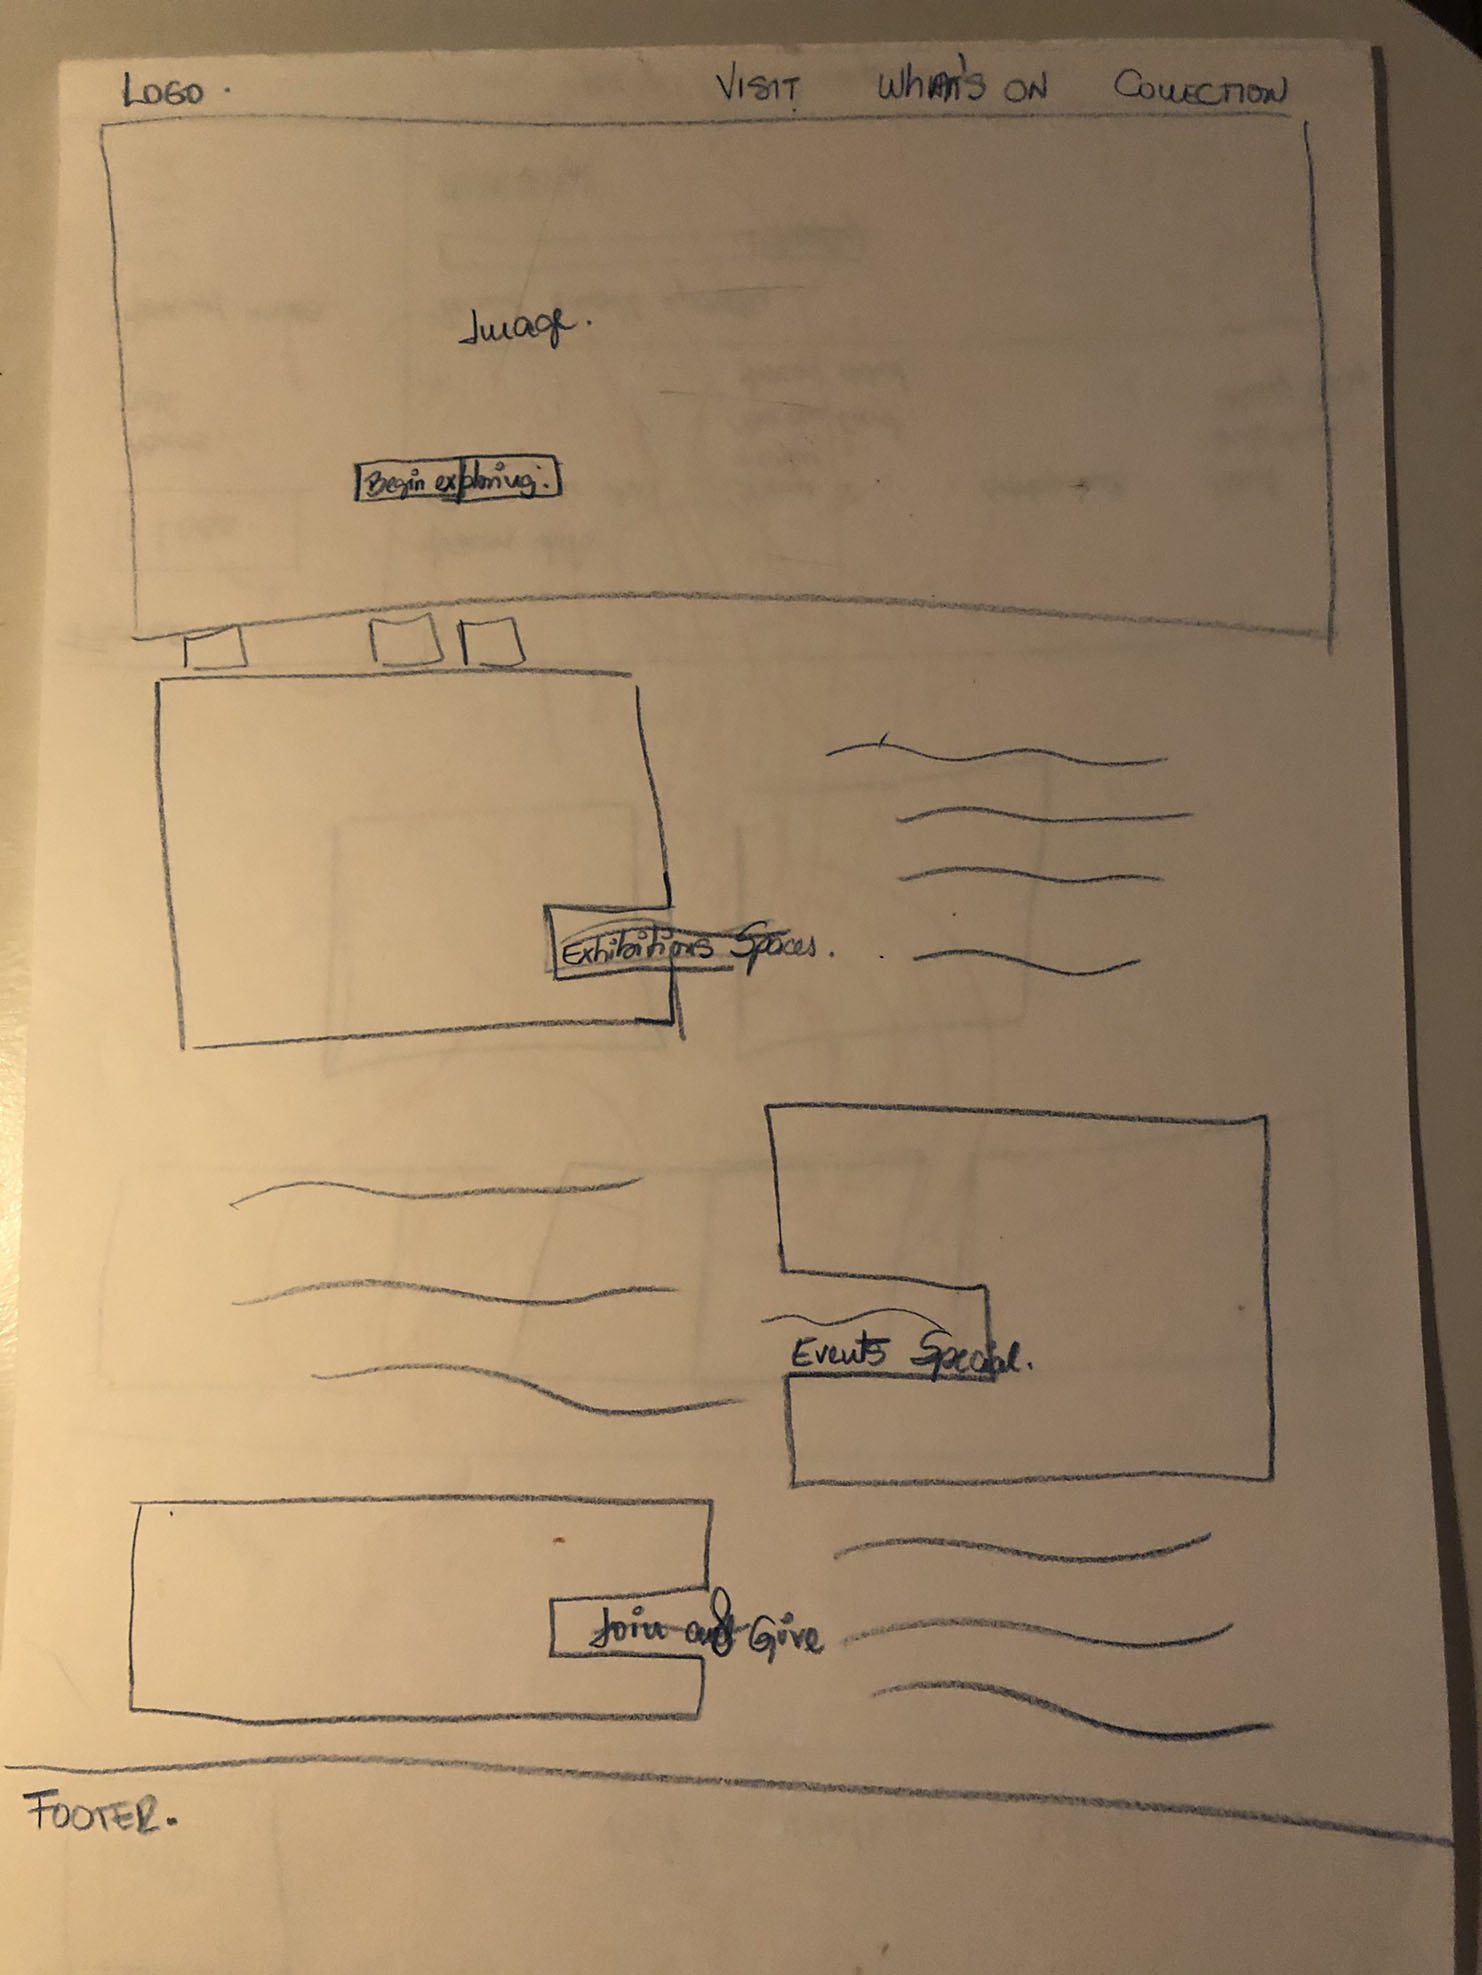 LOGO.
VISIT WHAT'S ON COLLECTION
Image.
Begin exploring.
Exhibitions Spaces.
Events Special.
Join and Give
FOOTER.